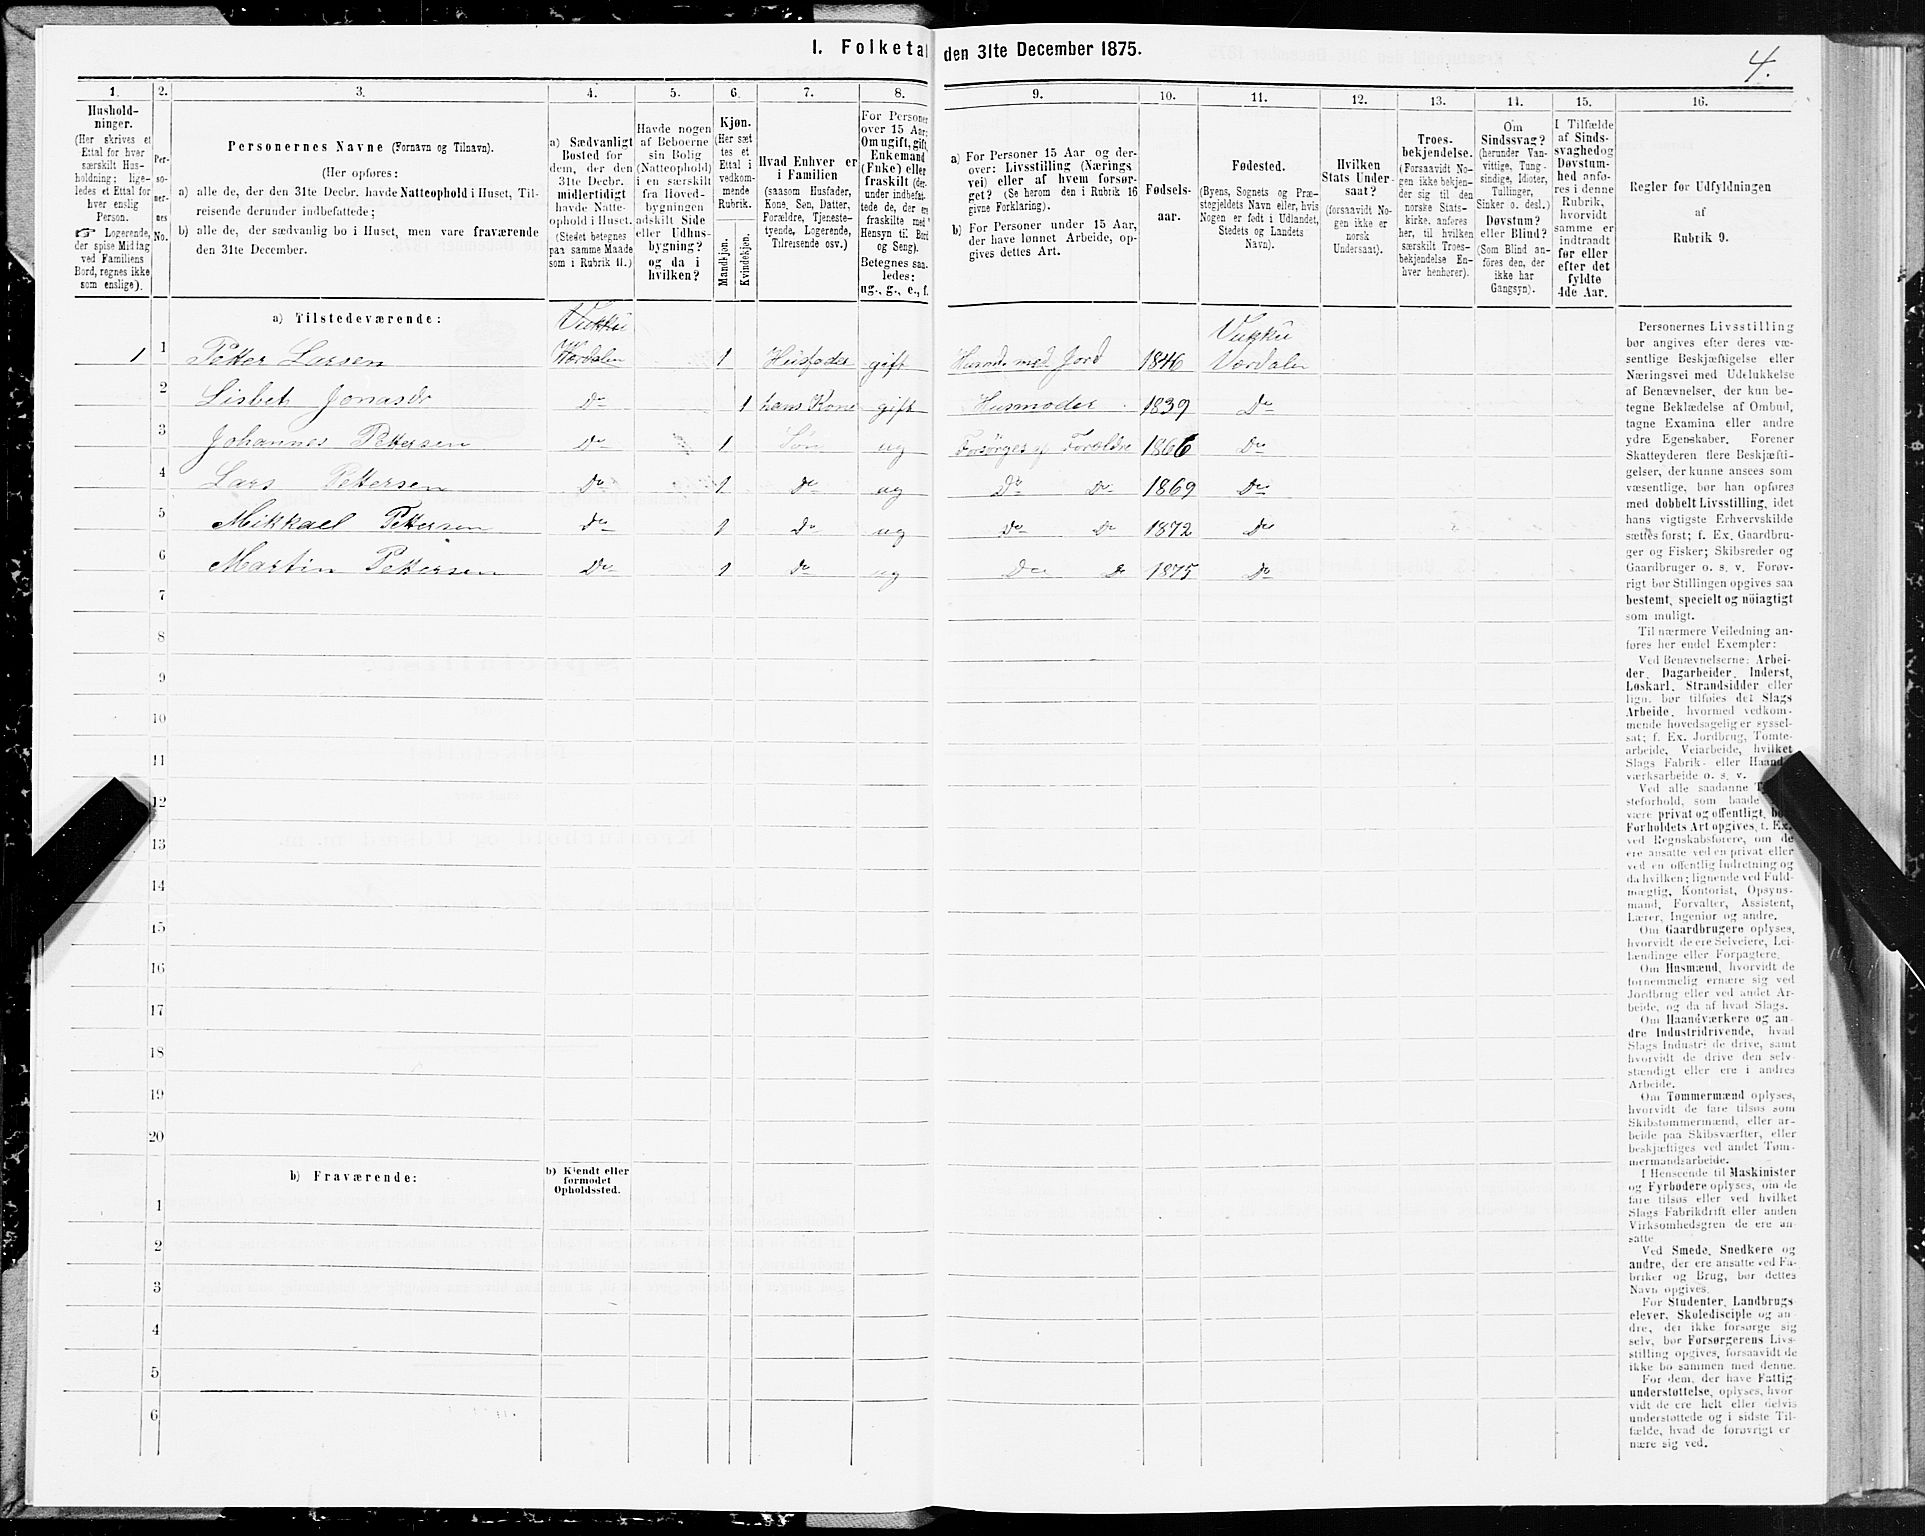 I. Folketal den 31te December 1875.
4.
1. 2. 3. 4. 5. 6. 7. 8. 9. 10. 11. 12. 13. 14. 15. 16.
Hushold-
ninger.
(Her skrives et
Ettal for hver
særskilt Hus-
holdning; lige-
ledes et Ettal for
hver enslig
Person.
☞ Logerende,
der spise Middag
ved Familiens
Bord, regnes ikke
som enslige).
Per-
so-
ner-
nes
No.
Personernes Navne (Fornavn og Tilnavn).
(Her opføres:
a) alle de, der den 31te Decbr. havde Natteophold i Huset, Til-
reisende derunder indbefattede;
b) alle de, der sædvanlig bo i Huset, men vare fraværende
den 31te December.
a) Sædvanligt
Bosted for
dem, der den
31te Decbr.
midlertidigt
havde Natte-
ophold i Huset.
(Stedet betegnes
paa samme Maade
som i Rubrik 11.)
Havde nogen
af Beboerne
sin Bolig
(Natteophold)
i en særskilt
fra Hoved-
bygningen
adskilt Side
eller Udhus-
bygning?
og da i
hvilken?
Kjøn.
(Her sæt
tes et
Ettal i
vedkom-
mende
Rubrik.
Mandkjøn.
Kvindekjøn.
Hvad Enhver er
i Familien
(saasom Husfader,
Kone, Søn, Datter,
Forældre, Tjeneste-
tyende, Logerende,
Tilreisende osv.)
For Personer
over 15 Aar:
Om ugift, gift,
Enkemand
(Enke) eller
fraskilt (der-
under indbefat-
tede de, der ere
fraskilte med
Hensyn til Bord
og Seng).
Betegnes saa-
ledes:
ug., g., e., f.
a) For Personer 15 Aar og der-
over: Livsstilling (Nærings
vei) eller af hvem forsør-
get? (Se herom den i Rubrik 16
givne Forklaring).
b) For Personer under 15 Aar,
der have lønnet Arbeide, op-
gives dettes Art.
Fødsels-
aar.
Fødested.
(Byens, Sognets og Præ-
stegjeldets Navn eller, hvis
Nogen er født i Udlandet,
Stedets og Landets
Navn).
Hvilken
Stats Under-
saat?
(forsaavidt No-
gen ikke er
norsk
Undersaat).
Troes-
bekjendelse.
(Forsaavidt No-
gen ikke bekjen-
der sig til den
norske Stats-
kirke, anføres
her, til hvilken
særskilt Troes-
bekjendelse En-
hver henhører).
Om
Sindssvag?
(herunder Van-
vittige, Tung-
sindige, Idioter,
Tullinger,
Sinker o. desl.)
Døvstum?
eller Blind?
(Som Blind an-
føres den, der
ikke har
Gangsyn).
I Tilfælde
af Sinds-
svaghed og
Døvstum-
hed anfø-
res i denne
Rubrik,
hvorvidt
samme er
indtraadt
før eller
efter det
fyldte
4de Aar.
Regler for Udfyldningen
af
Rubrik 9.
a) Tilstedeværende:
Vukku Vukku
1 1 Petter Larsen Værdalen 1 Husfader gift Husmd med Jord 1846 Værdalen
2 Lisbet Jonasdr Do 1 hans Kone gift Husmoder 1839 Do
3 Johannes Pettersen Do 1 Søn ug Forsørges af Forældre 1866 Do
4 Lars Pettersen Do 1 Do ug Do Do 1869 Do
5 Mikkael Pettersen Do 1 Do ug Do Do 1872 Do
6 Martin Pettersen Do 1 Do ug Do Do 1875 Do
7
8
9
10
11
12
13
14
15
16
17
18
19
20
b) Fraværende: b) Kjendt eller
formodet
Opholdssted.
1
2
3
4
5
6
Personernes Livsstilling
bør angives efter deres væ-
sentlige Beskjæftigelse eller
Næringsvei med Udelukkelse
af Benævnelser, der kun be-
tegne Beklædelse af Ombud,
tagne Examina eller andre
ydre Egenskaber. Forener
Skatteyderen flere Beskjæfti-
gelser, der kunne ansees som
væsentlige, bør han opføres
med dobbelt Livsstilling, idet
hans vigtigste Erhvervskilde
sættes først; f. Ex. Gaardbru-
ger og Fisker; Skibsreder og
Gaardbruger o. s. v. Forøv-
rigt bør Stillingen opgives saa
bestemt, specielt og nöiagtigt
som muligt.
Til nærmere Veiledning an-
føres her endel Exempler:
Ved Benævnelserne: Arbei-
der, Dagarbeider, Inderst,
Løskarl, Strandsidder eller
lign. bør tilføies det Slags
Arbeide, hvormed vedkom-
mende hovedsagelig er syssel-
sat; f. Ex. Jordbrug, Tomte-
arbeide, Veiarbeide, hvilket
Slags Fabrik- eller Haand-
værksarbeide o. s. v.
Ved alle saadanne
steforhold, som baade
være privat og offentligt, bør
Forholdets Art opgives, f. Ex.
ved Regnskabsførere, om de
ere ansatte ved en privat eller
ved en offentlig Indretning og
da hvilken; lignende ved Fuld-
mægtig, Kontorist, Opsyns-
mand, Forvalter, Assistent,
Lærer, Ingeniør og andre.
Om Gaardbrugere oplyses,
hvorvidt de ere Selveiere, Lei-
lændinge eller Forpagtere.
Om Husmænd, hvorvidt de
fornemmelig ernære sig ved
Jordbrug eller ved andet Ar-
beide, og da af hvad Slags.
Om Haandværkere og an-
dre Industridrivende, hvad
Slags Industri de drive, samt
hvorvidt de drive den selv-
stændigt eller ere i andres
Arbeide.
Om Tømmermænd oplyses,
hvorvidt de fare tilsøs som
Skibstømmermænd, eller ar-
beide paa Skibsværfter, eller
beskjæftiges ved andet Tøm-
mermandsarbeide.
I Henseende til Maskinister
og Fyrbødere oplyses, om de
fare tilsøs eller ved hvilket
Slags Fabrikdrift eller anden
Virksomhedsgren de ere an-
satte
Ved Smede, Snedkere og
andre, der ere ansatte ved Fa-
briker og Brug, bør dettes
Navn opgives.
For Studenter, Landbrugs-
elever, Skoledisciple og an-
dre, der ikke forsørge sig
selv, bør Forsørgerens Livs-
stilling opgives, forsaavidt de
ikke bo sammen med denne.
For dem, der have Fattig-
understøttelse, oplyses, hvor
vidt de ere helt eller delvis
understøttede og i sidste Til-
fælde, hvad de forøvrigt er
nære sig ved.